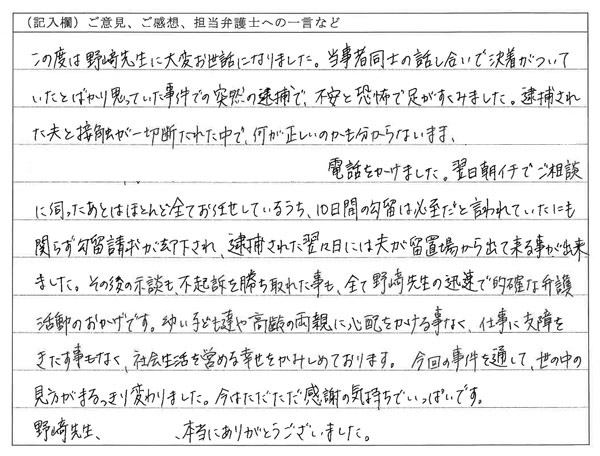 （記入欄）ご意見、ご感想、担当弁護士への一言など
この度は野崎先生に大変お世話になりました。当事者同士の話し合いで決着がついて
いたとばかり思っていた事件での突然の逮捕で、不安と恐怖で足がすくみました。逮捕され
た夫と接触が一切断たれた中で、何が正しいのかも分からないまま、
電話をかけました。翌日朝イチでご相談
に伺ったあとはほとんど全てお任せしているうち、10日間の勾留は必至だと言われていたにも
関らず勾留請求が却下され、逮捕された翌々日には夫が留置場から出て来る事が出来
ました。その後の示談も、不起訴を勝ち取れた事も、全て野崎先生の迅速で的確な弁護
活動のおかげです。幼い子ども達や高齢の両親に心配をかける事なく、仕事に支障を
きたす事もなく、社会生活を営める幸せをかみしめております。 今回の事件を通して、世の中の
見方がまるっきり変わりました。今はただただ感謝の気持ちでいっぱいです。
野崎先生、 、本当にありがとうございました。